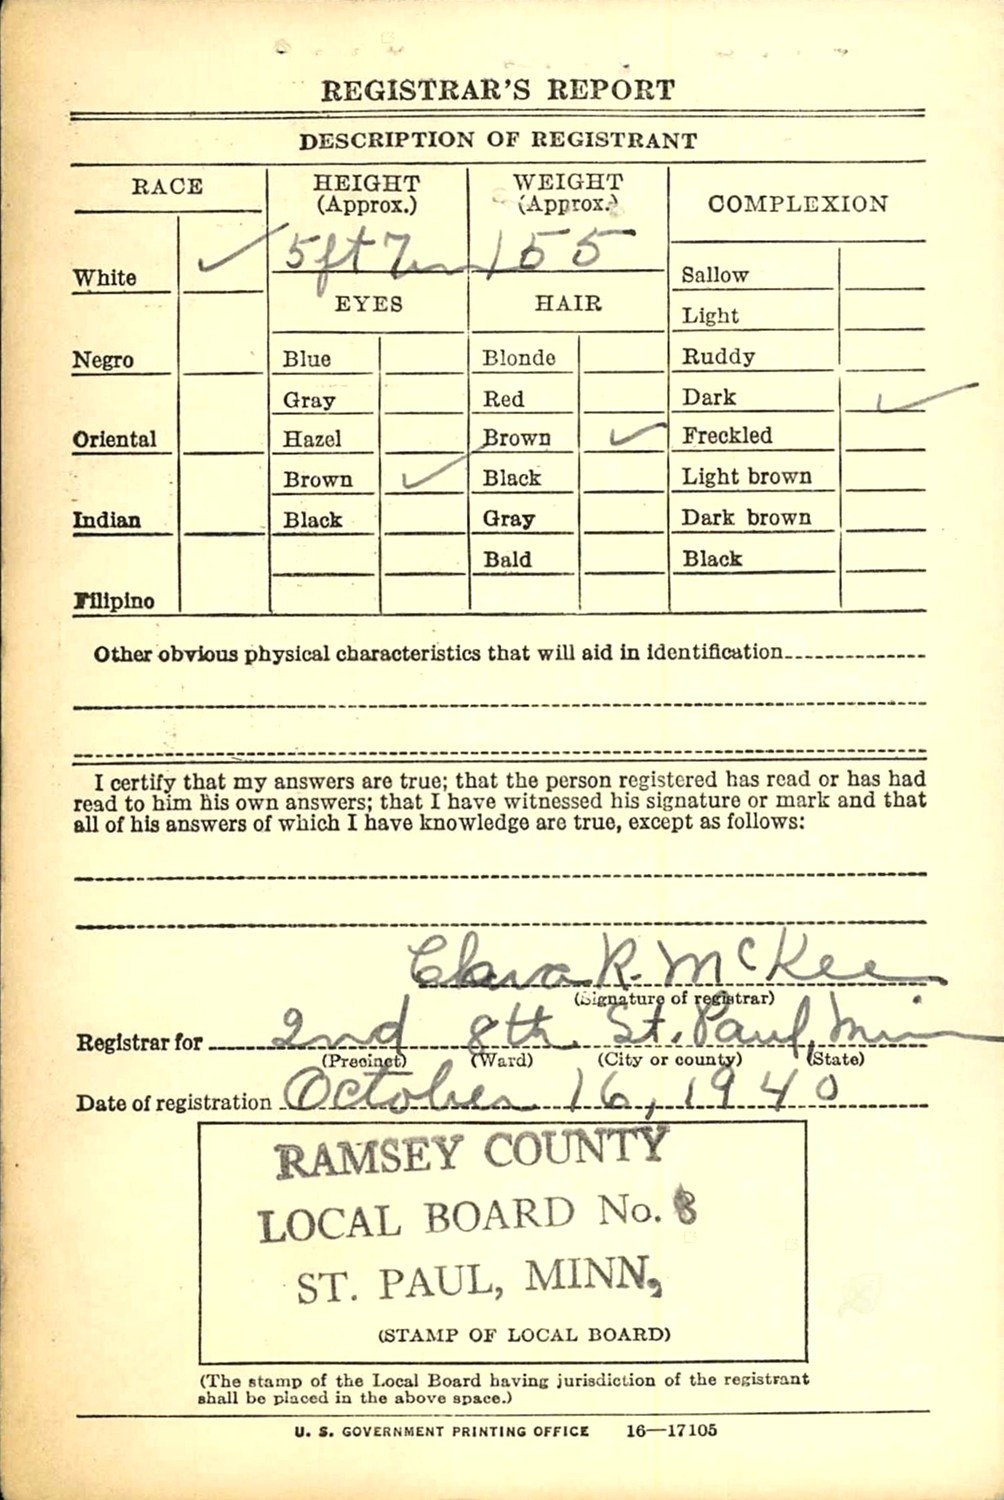 REGISTRAR'S REPORT
DESCRIPTION OF REGISTRANT
RACE
HEIGHT
(Approx.)
WEIGHT
(Approx.)
COMPLEXION
5 ft 7 in
155
White ✓
EYES
HAIR
Sallow
Light
Negro
Blue
Blonde
Ruddy
Gray
Red
Dark ✓
Oriental
Hazel
Brown ✓
Freckled
Brown ✓
Black
Light brown
Indian
Black
Gray
Dark brown
Bald
Black
Filipino
Other obvious physical characteristics that will aid in identification
I certify that my answers are true; that the person registered has read or has had
read to him his own answers; that I have witnessed his signature or mark and that
all of his answers of which I have knowledge are true, except as follows:
Clara R. McKee
(Signature of registrar)
Registrar for 2nd 8th St. Paul, Minn
(Precinct) (Ward) (City or county) (State)
Date of registration October 16, 1940
RAMSEY COUNTY
LOCAL BOARD No. 8
ST. PAUL, MINN,
(STAMP OF LOCAL BOARD)
(The stamp of the Local Board having jurisdiction of the registrant
shall be placed in the above space.)
U. S. GOVERNMENT PRINTING OFFICE 16—17105